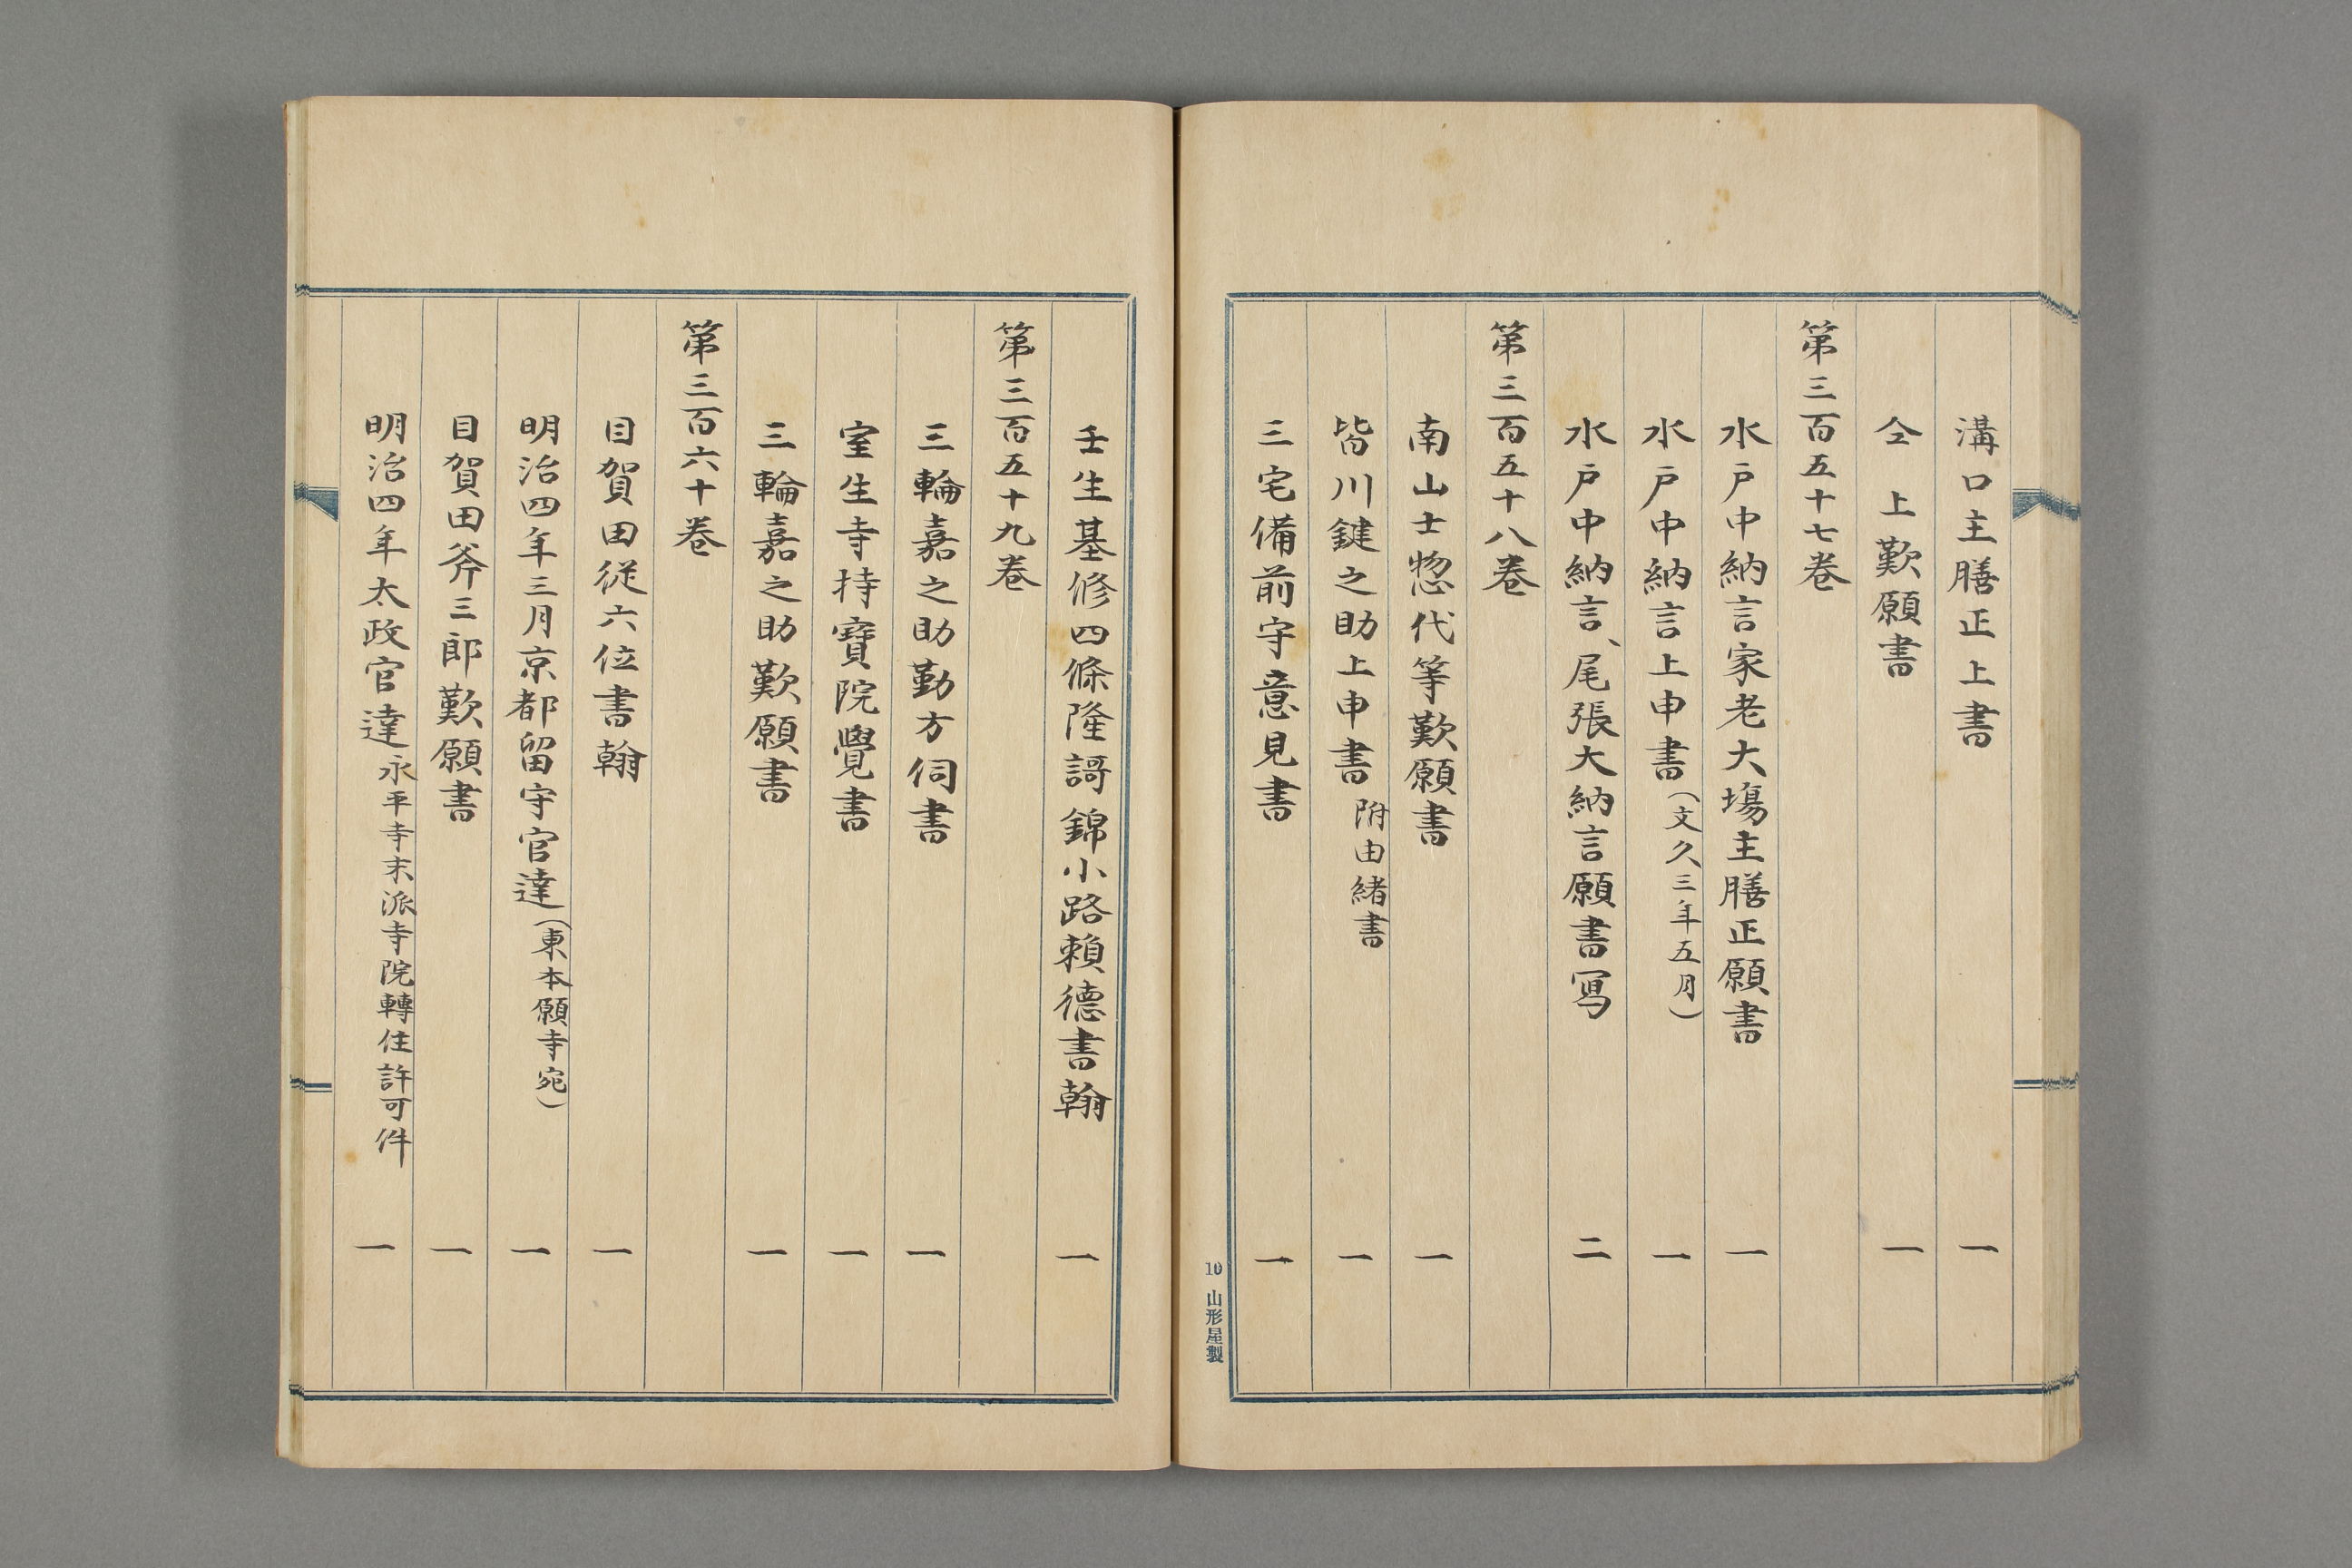 溝口主膳正上書 一
仝 上歎願書 一
第三百五十七巻
水戸中納言家老大塲主膳正願書 一
水戸中納言上申書（文久三年五月） 一
水戸中納言、尾張大納言願書写 二
第三百五十八巻
南山士惣代等歎願書 一
皆川鍵之助上申書 附由緒書 一
三宅備前守意見書 一
10 山形屋製
壬生基修四條隆謌錦小路頼德書翰 一
第三百五十九巻
三輪嘉之助勤方伺書 一
室生寺持寶院覺書 一
三輪嘉之助歎願書 一
第三百六十巻
目賀田従六位書翰 一
明治四年三月京都留守官達（東本願寺宛） 一
目賀田斧三郎歎願書 一
明治四年太政官達 永平寺末派寺院轉住許可件 一